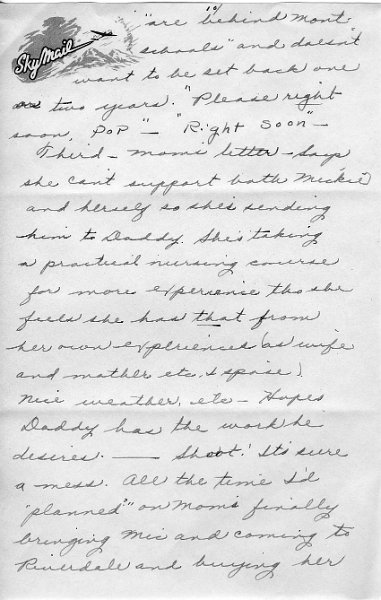 10
Sky Mail
"are behind Mont.
schools" and doesn't
want to be set back one
or two years. "Please right
soon, POP" - "Right Soon" -
Third - mom's letter - says
she can't support both Mickie
and herself so she's sending
him to Daddy. She's taking
a practical nursing course
for more experience tho she
feels she has that from
her own experiences (as wife
and mother etc. I spose).
Nice weather, etc - Hopes
Daddy has the work he
desires. — Shoot! Its sure
a mess. All the time I'd
"planned" on Mom's finally
bringing Mic and coming to
Riverdale and buying her